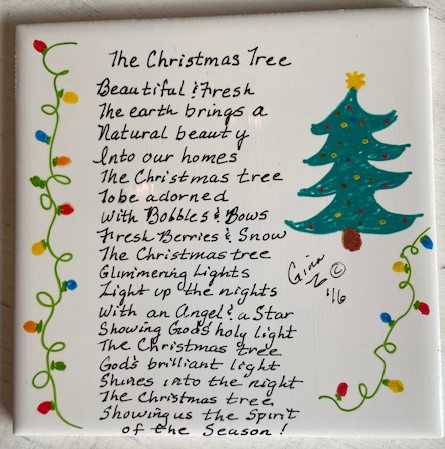 The Christmas Tree
Beautiful & Fresh
The earth brings a
Natural beauty
Into our homes
The Christmas tree
To be adorned
With Bobbles & Bows
Fresh Berries & Snow
The Christmas tree
Glimmering Lights
Light up the nights
With an Angel & a Star
Showing Gods holy light
The Christmas tree
God's brilliant light
Shines into the night
The Christmas tree
Showing us the Spirit
of the Season!
Gina ©
Z '16